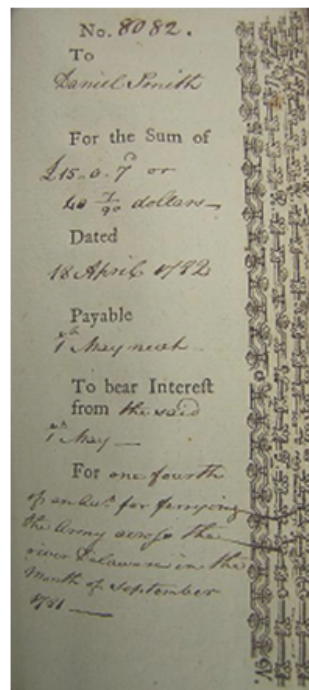 No. 8082.
To
Daniel Smith
For the Sum of
£15.0.7 or
40 7/90 dollars
Dated
18 April 1782
Payable
1st May next
To bear Intereſt
from the said
1st May
For one fourth
of an Acct. for ferrying
the Army across the
river Delaware in the
Month of September
1781